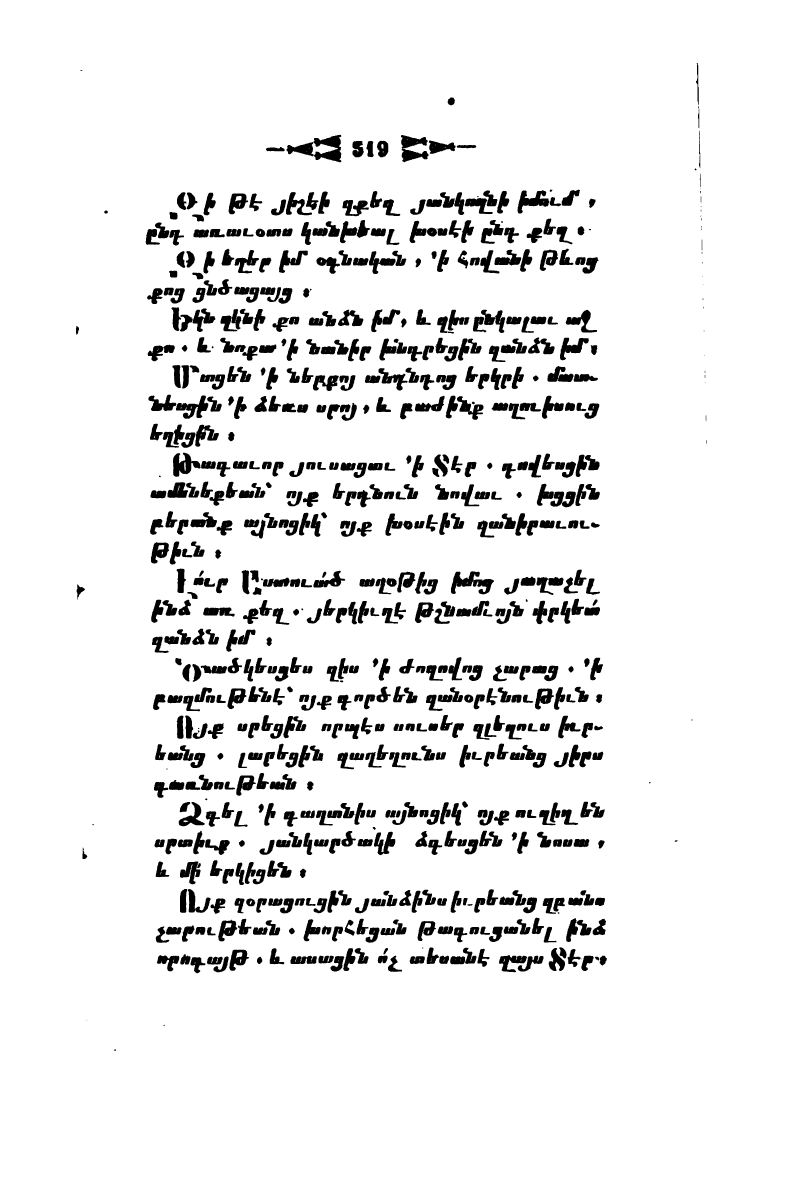 —◄ 519 ►—
Զի թէ յիշեի զքեզ յանկողնի իմում ,
ընդ առաւօտս կանխեալ խօսէի ընդ քեզ ։
Զի եղեր իմ օգնական , ՚ի հովանի թևոց
քոց ցնծացայց ։
Ելն զկնի քո անձն իմ , և զիս ընկալաւ աջ
քո . և նոքա ՚ի նանիր խնդրեցին զանձն իմ ։
Մտցեն ՚ի ներքոյ անդնդոց երկրի . մատ-
նեսցին ՚ի ձեռս սրոյ , և բաժինք աղուիսուց
եղիցին ։
Թագաւոր յուսացաւ ՚ի Տէր . գովեսցին
ամենեքեան՝ ոյք երդնուն նովաւ . խցցին
բերանք այնոցիկ՝ ոյք խօսէին զանիրաւու-
թիւն ։
Լո՛ւր Աստուած աղօթից իմոց յաղաչել
ինձ առ քեզ . յերկիւղէ թշնամւոյն փրկեա՛
զանձն իմ ։
Ծածկեսցես զիս ՚ի ժողովոց չարաց . ՚ի
բազմութենէ՝ ոյք գործեն զանօրէնութիւն ։
Ոյք սրեցին որպէս սուսեր զլեզուս իւր-
եանց . լարեցին զաղեղունս իւրեանց յիրս
դառնութեան ։
Ձգել ՚ի գաղտնիս այնոցիկ՝ ոյք ուղիղ են
սրտիւք . յանկարծակի ձգեսցեն ՚ի նոսա ,
և մի՛ երկիցեն ։
Ոյք զօրացուցին յանձինս իւրեանց զբանս
չարութեան . խորհեցան թագուցանել ինձ
որոգայթ . և ասացին ո՛չ տեսանէ զայս Տէր ։